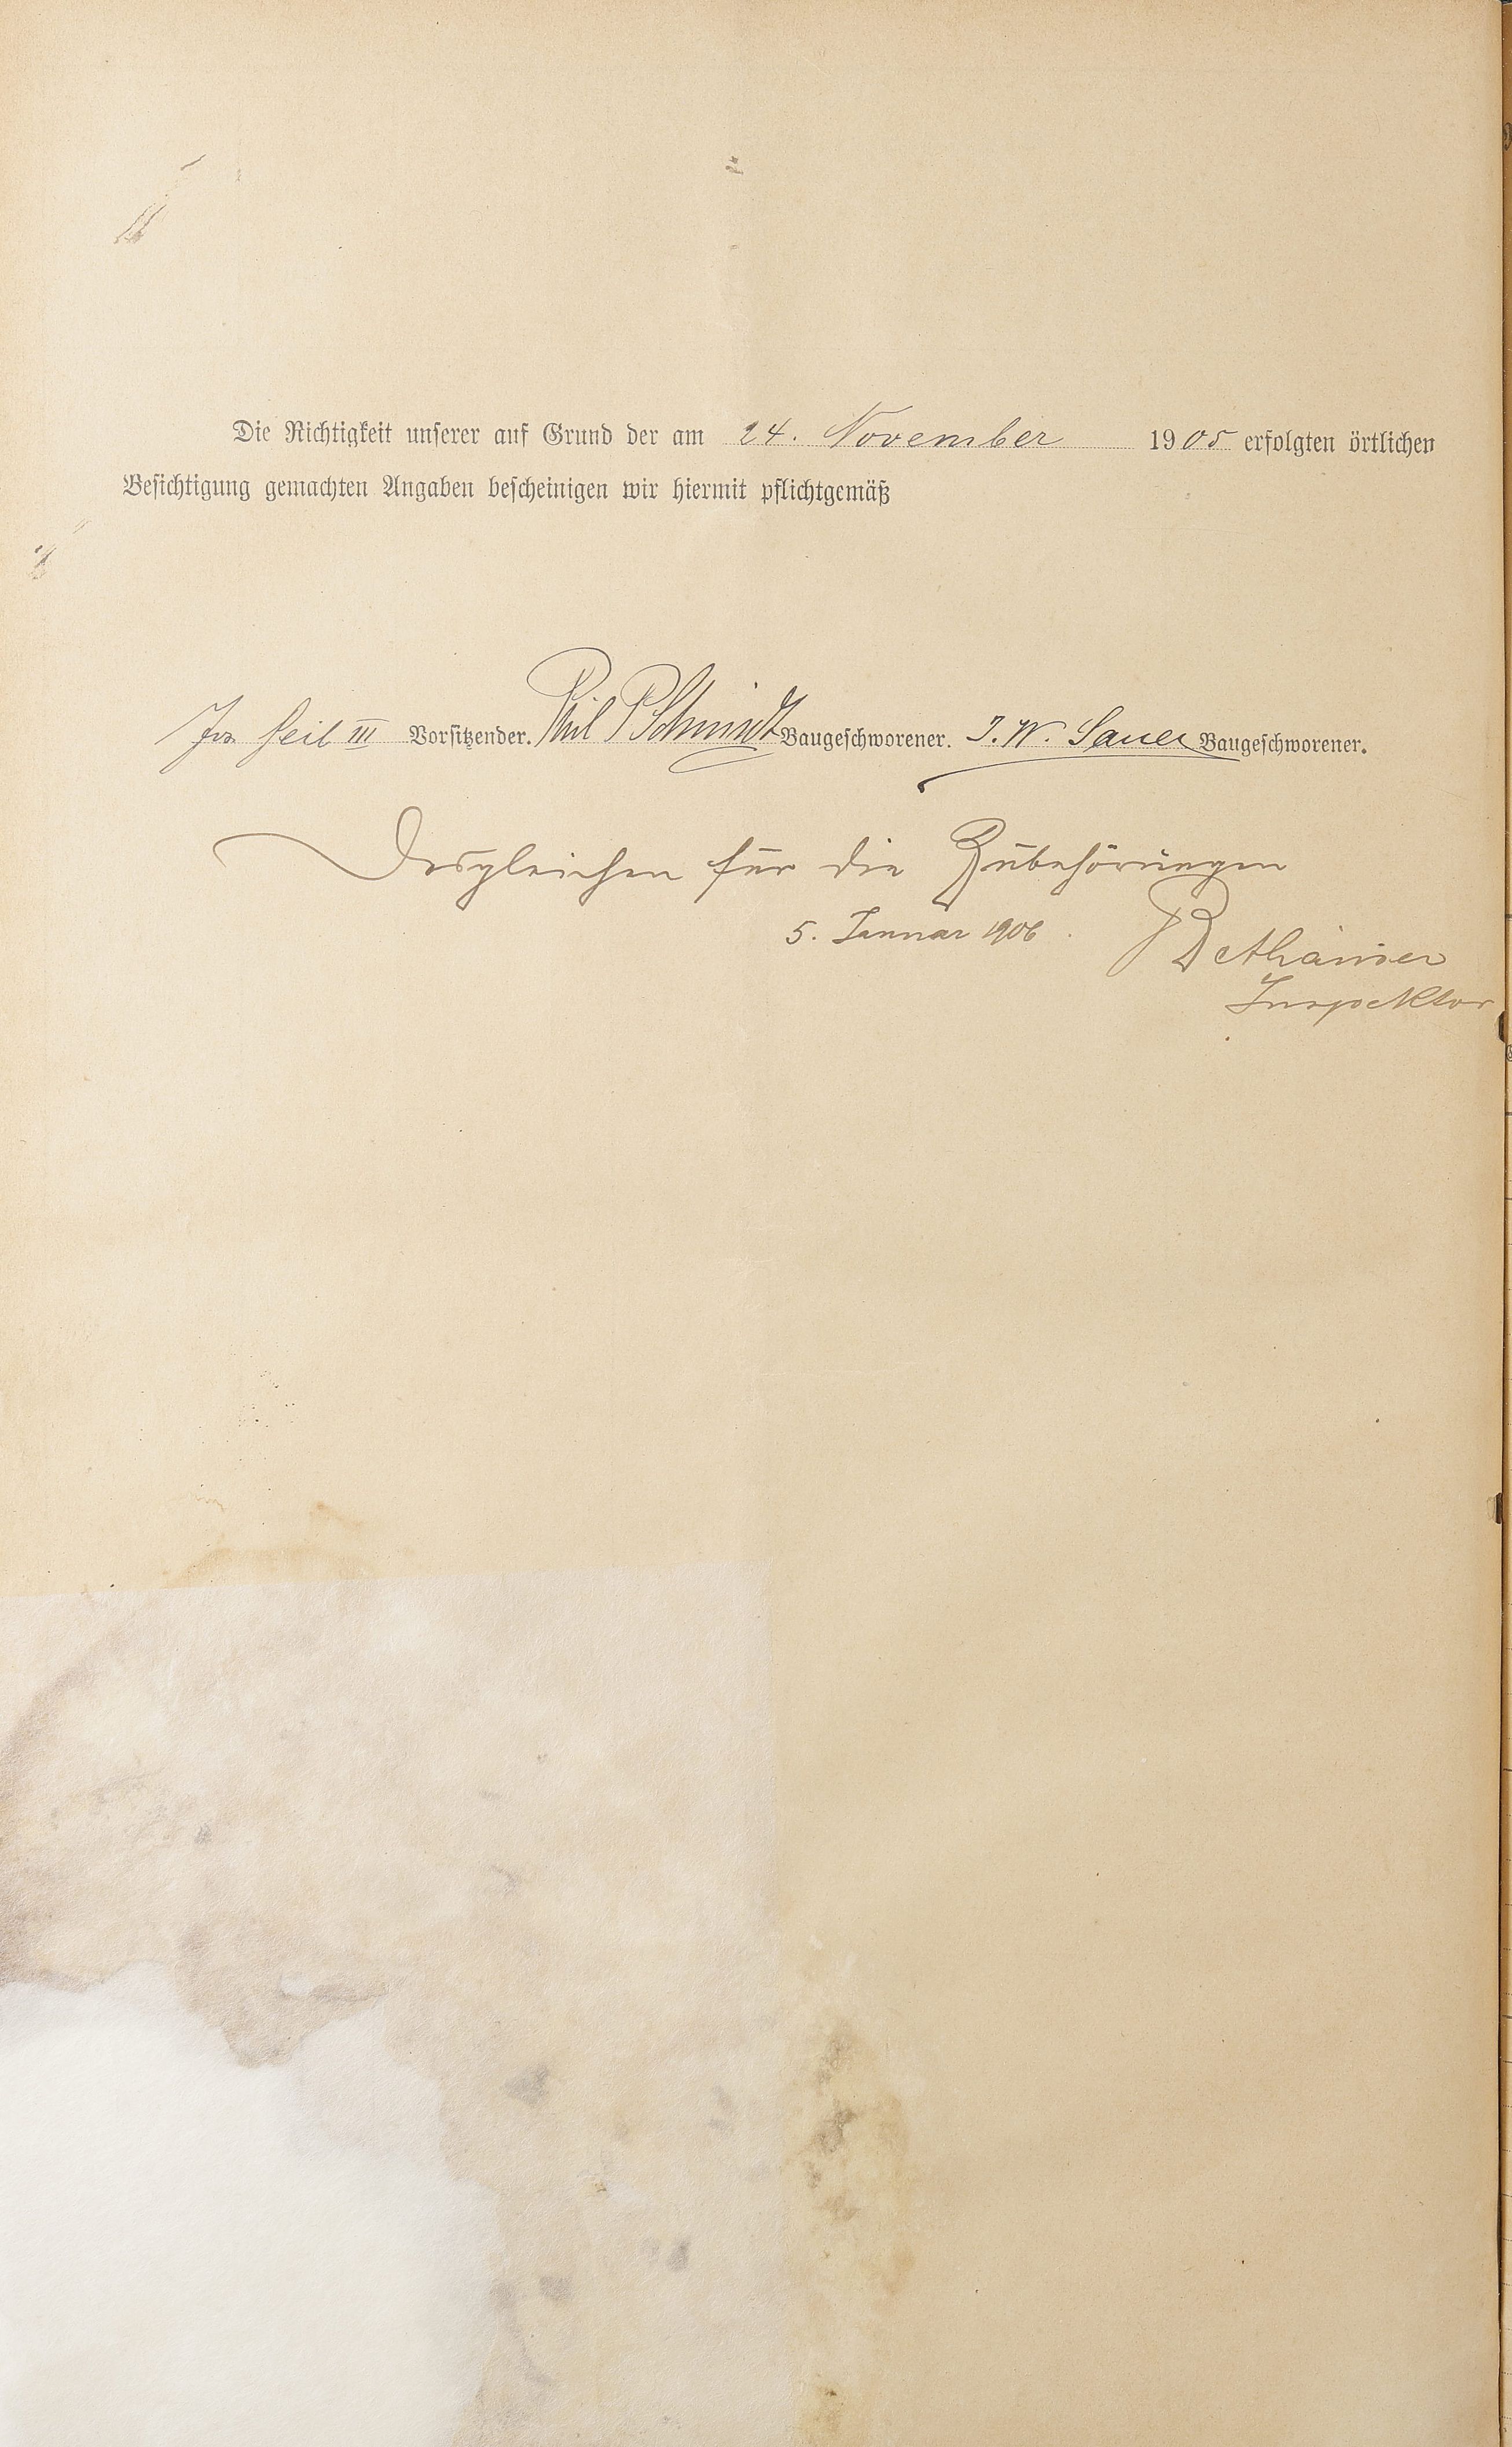 Die Richtigkeit unserer auf Grund der am 24. November 1905 erfolgten örtlichen
Besichtigung gemachten Angaben bescheinigen wir hiermit pflichtgemäß
Jos Feil III Vorsitzender. Phil P Schmidt Baugeschworener. J. W. Sauer Baugeschworener.
Desgleichen für die Zubehörungen
5. Januar 1906.
Inspektor